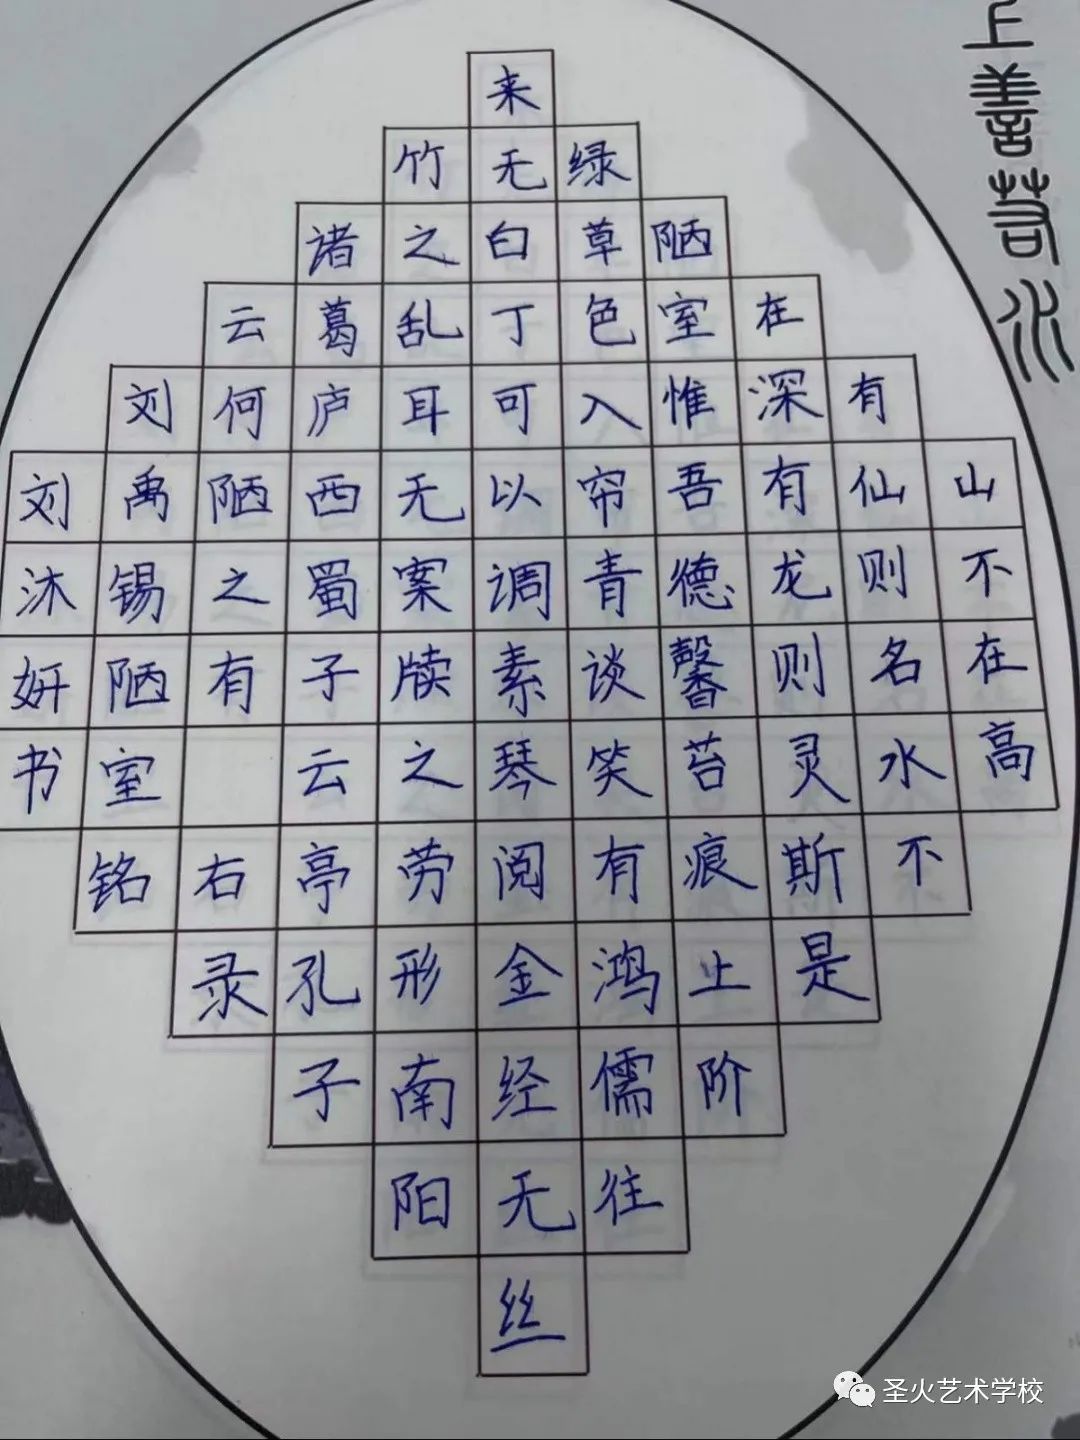 上善若水
山不在高
有仙则名水不
在深有龙则灵斯是
陋室惟吾德馨苔痕上阶
绿草色入帘青谈笑有鸿儒往
来无白丁可以调素琴阅金经无丝
竹之乱耳无案牍之劳形南阳
诸葛庐西蜀子云亭孔子
云何陋之有 右录
刘禹锡陋室铭
刘沐妍书
圣火艺术学校